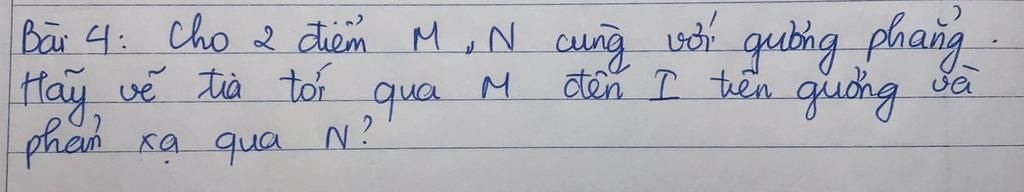 Bài 4: Cho 2 điểm M, N cùng với gương phẳng.
Hãy vẽ tia tới qua M đến I trên gương và
phản xạ qua N?